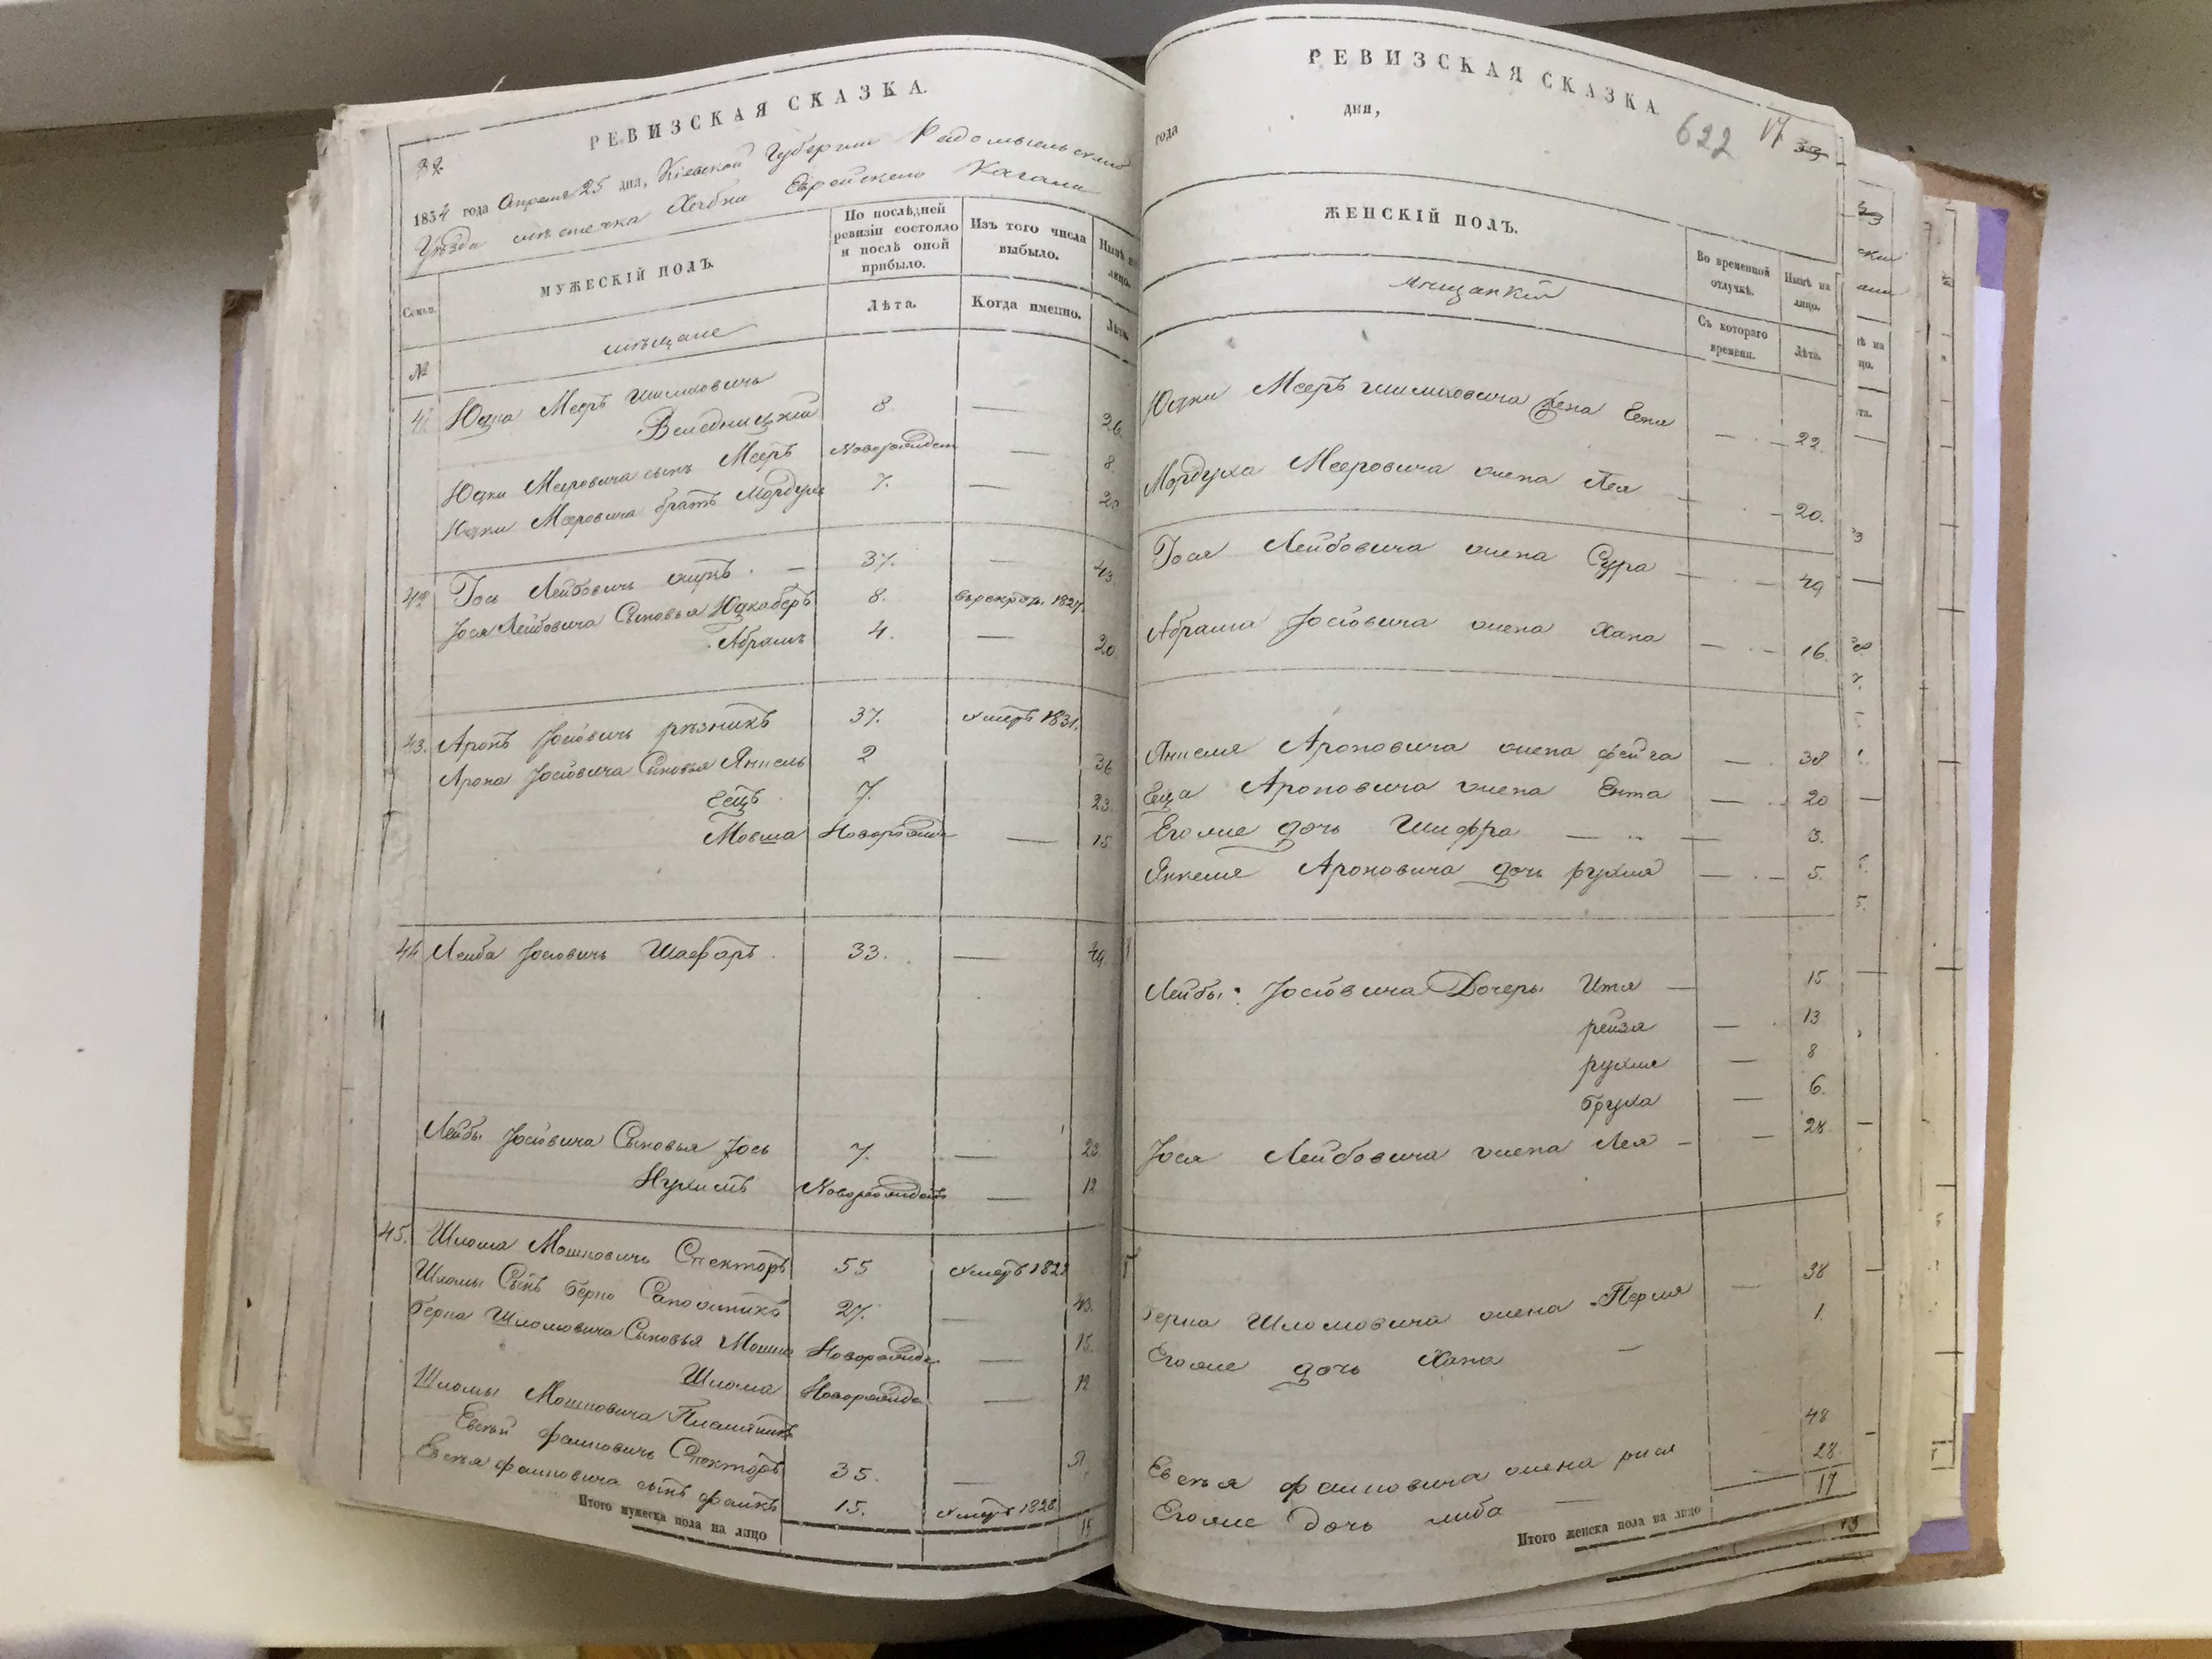 РЕВИЗСКАЯ СКАЗКА.
32
1834 года Апреля 25 дня, Кіевской Губерніи Радомысльскаго
Уѣзда мѣстечка Хабни Еврейскаго Кагала
Семьи.
МУЖЕСКІЙ ПОЛЪ.
По послѣдней ревизіи состояло и послѣ оной прибыло.
Изъ того числа выбыло.
Нынѣ на лицо.
Лѣта.
Когда именно.
Лѣта.
№
мѣщане
41 Юдка Мееръ Шимховичь
Веледницкій 8 — 26.
Юдки Мееровича сынъ Мееръ Новорожден — 8
Юдки Мееровича братъ Мордухъ 7. —
42 Іось Лейбовичь — 37. —
Іося Лейбовича Сыновья Юдкаберъ 8. 1827.
Абрамъ 4. — 20
43. Аронъ Іосіовичь рѣзникъ 37. Умеръ 1831.
Арона Іосіовича Сыновья Янкель 2 36
7. 23.
Мовша Новорожде — 15
44 Лейба Іосіовичь 33. —
Лейбы Іосіовича Сыновья Іось 7. — 23.
Нухимъ Новорожденъ — 12
45. Шлома Мошковичь Спекторъ 55 Умеръ
Шломы Сынъ Берко Сапожникъ 27. — 43.
Берка Шломовича Сыновья Мошко Новорожде — 15.
Шлома Новорожде — 12
Шломы Мошковича Племяникъ
Евсѣй Фаликовичь Спекторъ 35. — 51.
Евсѣя Фаликовича сынъ Фаликъ 15. Умеръ 1828
Итого мужеска пола на лицо 15
РЕВИЗСКАЯ СКАЗКА.
года дня,
622 17 33
ЖЕНСКІЙ ПОЛЪ.
Во временной отлучкѣ.
Нынѣ на лицо.
мѣщанкій
Съ котораго времени.
Лѣта.
Юдки Мееръ Шимховича жена Ента — 22.
Мордуха Мееровича жена Лея — 20.
Іося Лейбовича жена Сура — 49
Абрама Іосіовича жена Хана — 16.
Янкеля Ароновича жена Фейга — 38
Ароновича жена Ента — 20
Его же дочь Шифра — 3.
Янкеля Ароновича дочь Рухля — 5.
Лейбы Іосіовича Дочери Итя — 15
Рейза — 13
Рухля — 8
Бруха — 6.
Іося Лейбовича жена Лея — 28
Берка Шломовича жена Перля — 38
Его же дочь Хана — 1.
48
Евсѣя Фаликовича жена Рися 28.
Его же дочь Либа — 17
Итого женска пола на лицо 13